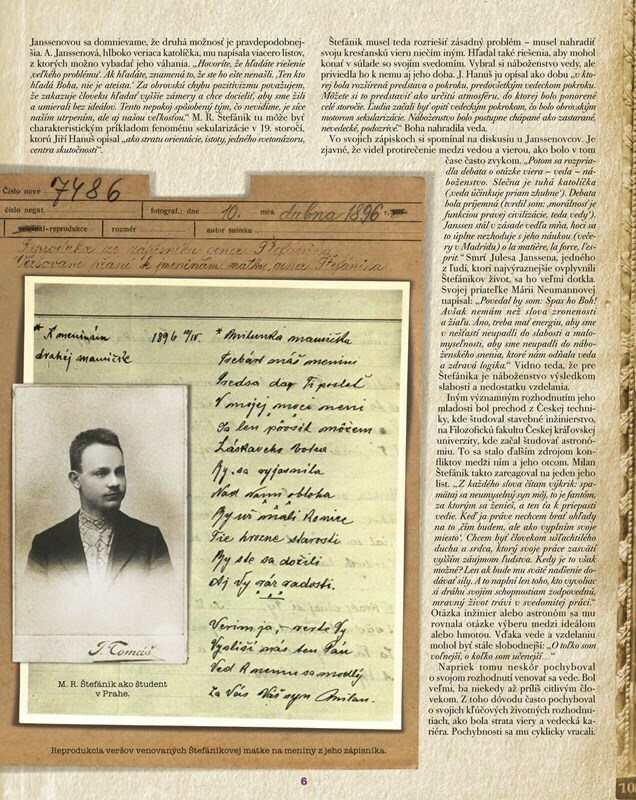 Janssenovou sa domnievame, že druhá možnosť je pravdepodobnej-
šia. A. Janssenová, hlboko veriaca katolíčka, mu napísala viacero listov,
z ktorých možno vybadať jeho váhania. „Hovoríte, že hľadáte riešenie
‚veľkého problému‘. Ak hľadáte, znamená to, že ste ho ešte nenašli. ‚Ten kto
hľadá Boha, nie je ateista.‘ Za obrovskú chybu pozitivizmu považujem,
že zakazuje človeku hľadať vyššie zámery a chce docieliť, aby sme žili
a umierali bez ideálov. Tento nepokoj spôsobený tým, čo nevidíme, je síce
naším utrpením, ale aj našou veľkosťou.“ M. R. Štefánik tu môže byť
charakteristickým príkladom fenoménu sekularizácie v 19. storočí,
ktorú Jiří Hanuš opísal „ako stratu orientácie, istoty, jedného svetonázoru,
centra skutočnosti“.
Štefánik musel teda rozriešiť zásadný problém – musel nahradiť
svoju kresťanskú vieru niečím iným. Hľadal také riešenia, aby mohol
konať v súlade so svojím svedomím. Vybral si náboženstvo vedy, ale
priviedla ho k nemu aj jeho doba. J. Hanuš ju opísal ako dobu „v kto-
rej bola rozšírená predstava o pokroku, predovšetkým vedeckom pokroku.
Môžete si to predstaviť ako určitú atmosféru, do ktorej bolo ponorené
celé storočie. Ľudia začali byť opití vedeckým pokrokom, čo bolo obrovským
motorom sekularizácie. Náboženstvo bolo postupne chápané ako zastarané,
nevedecké, podozrivé.“ Boha nahradila veda.
Vo svojich zápiskoch si spomínal na diskusiu u Janssenovcov. Je
zjavné, že videl protirečenie medzi vedou a vierou, ako bolo v tom
čase často zvykom. „Potom sa rozpria-
dla debata o otázke viera – veda – ná-
boženstvo. Slečna je tuhá katolíčka
(veda účinkuje priam zhubne). Debata
bola príjemná (tvrdil som: ‚morálnosť je
funkciou pravej civilizácie, teda vedy‘).
Janssen stál v zásade vedľa mňa, hoci sa
to úplne nezhoduje s jeho náukou (veče-
ry v Madride) o la matière, la force, l'es-
prit.“ Smrť Julesa Janssena, jedného
z ľudí, ktorí najvýraznejšie ovplyvnili
Štefánikov život, sa ho veľmi dotkla.
Svojej priateľke Márii Neumannovej
napísal: „Povedal by som: Spas ho Boh!
Avšak nemám než slova zronenosti
a žiaľu. Áno, treba mať energiu, aby sme
v nešťastí neupadli do slabosti a malo-
myseľnosti, aby sme neupadli do nábo-
ženského snenia, ktoré nám odňala veda
a zdravá logika.“ Vidno teda, že pre
Štefánika je náboženstvo výsledkom
slabosti a nedostatku vzdelania.
Iným významným rozhodnutím jeho
mladosti bol prechod z Českej techni-
ky, kde študoval stavebné inžinierstvo,
na Filozofickú fakultu Českej kráľovskej
univerzity, kde začal študovať astronó-
miu. To sa stalo ďalším zdrojom kon-
fliktov medzi ním a jeho otcom. Milan
Štefánik takto zareagoval na jeden jeho
list. „Z každého slova čítam výkrik: spa-
mätaj sa neumyselný syn môj, to je fantóm,
za ktorým sa ženieš, a ten ťa k priepasti
vedie. Keď ja práve nechcem brať ohľady
na to ‚čím budem, ale ako vyplním svoje
miesto‘. Chcem byť človekom ušľachtilého
ducha a srdca, ktorý svoje práce zasvätí
vyšším záujmom ľudstva. Kedy je to však
možné? Len ak bude mu sväté nadšenie do-
dávať síly. A to naplní len toho, kto vyvoliac
si dráhu svojim schopnostiam zodpovednú,
mravný život trávi v svedomitej práci.“
Otázka inžinier alebo astronóm sa mu
rovnala otázke výberu medzi ideálom
alebo hmotou. Vďaka vede a vzdelaniu
mohol byť stále slobodnejší: „O toľko som
voľnejší, o koľko som učenejší...“
Napriek tomu neskôr pochyboval
o svojom rozhodnutí venovať sa vede. Bol
veľmi, ba niekedy až príliš citlivým člo-
vekom. Z toho dôvodu často pochyboval
o svojich kľúčových životných rozhodnu-
tiach, ako bola strata viery a vedecká ka-
riéra. Pochybnosti sa mu cyklicky vracali.
Číslo nové 7486
číslo negat. fotograf.: dne 10. měs. dubna 1896
originál-reprodukce rozměr autor snímku
Reprodukce ze zápisníku gener. Štefánika
Veršované přání k meninám matky gener. Štefánika
* K meninám 1896 10/IV.
drahej mamičke
* Milunká mamička
Trebárs máš meniny
Predsa dar Ti poslať
V mojej moci není
Ja len prosiť môžem
Láskavého Boha
By sa vyjasnila
Nad vami obloha
By už mali konice
Tie hrozné starosti
By ste sa dožili
Aj vy ráz radosti.
Verím ja, verte Vy
Vyslyší nás ten Pán
Veď k nemu sa modlí
Za Vás Váš syn Milan.
J. Tomáš
M. R. Štefánik ako študent
v Prahe.
Reprodukcia veršov venovaných Štefánikovej matke na meniny z jeho zápisníka.
6
10